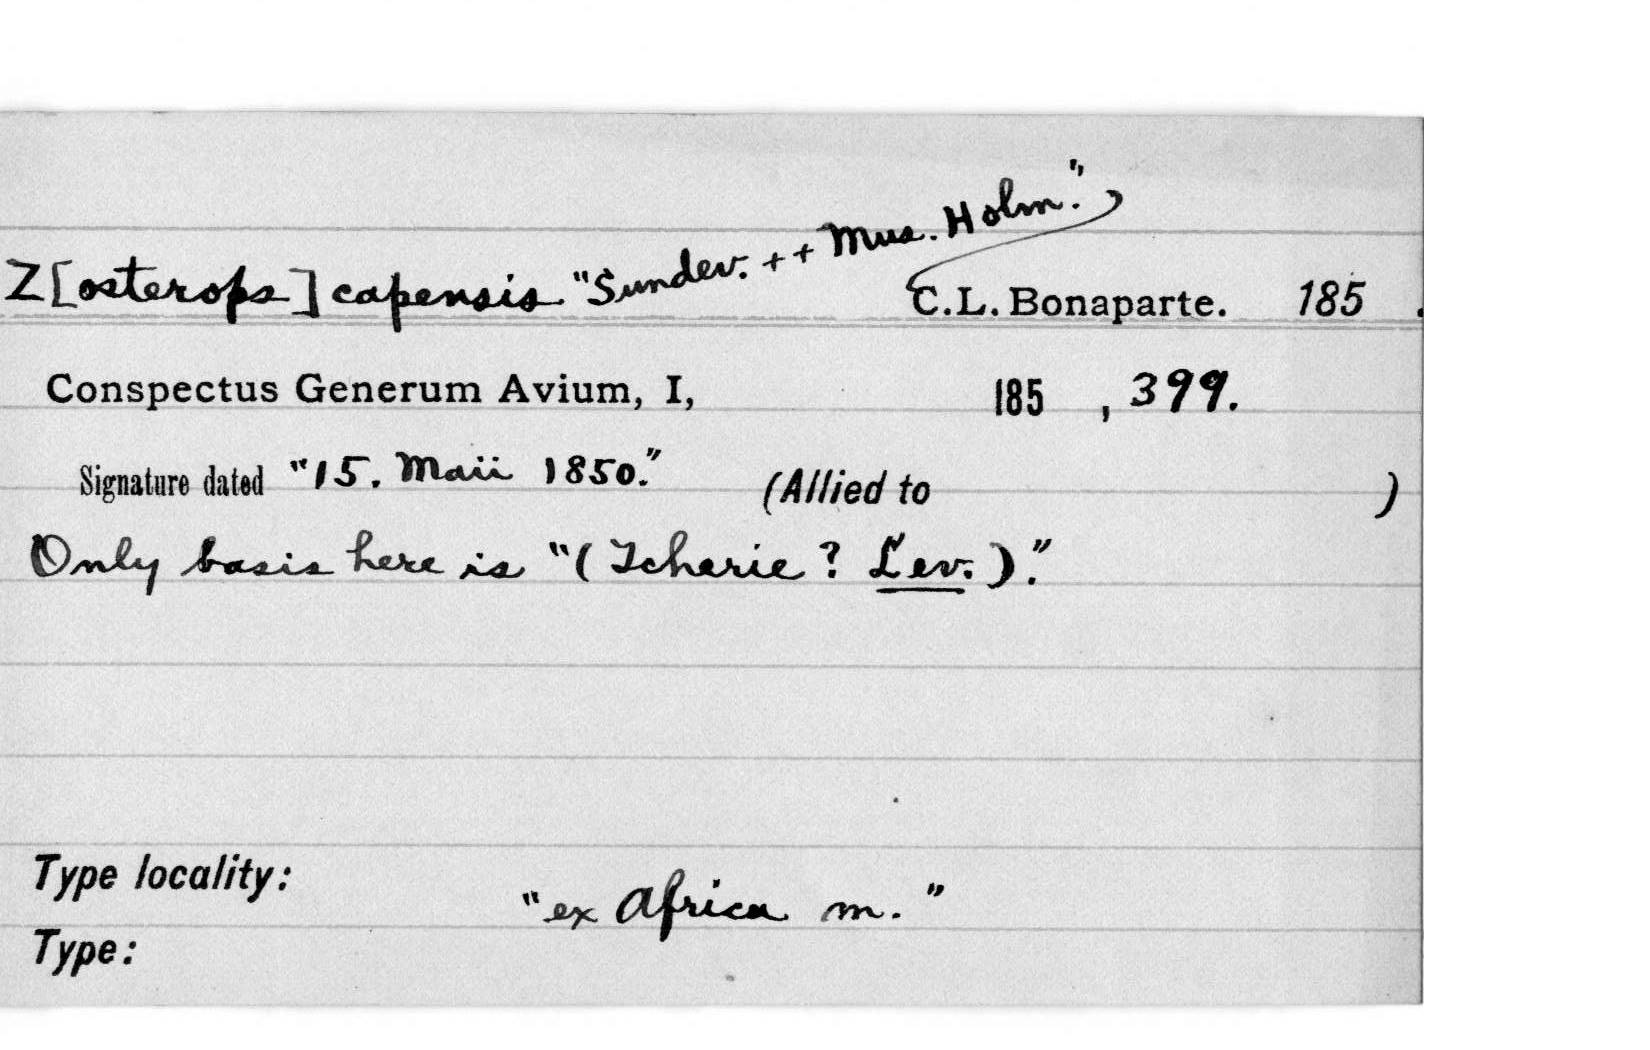 Z[osterops] capensis "Sundev. ++ Mus. Holm."
C.L. Bonaparte. 185 .
Conspectus Generum Avium, I, 185 , 399.
Signature dated "15. Maii 1850." (Allied to )
Only basis here is "(Tcherie? Lev.)."
Type locality:
"ex Africa m."
Type: